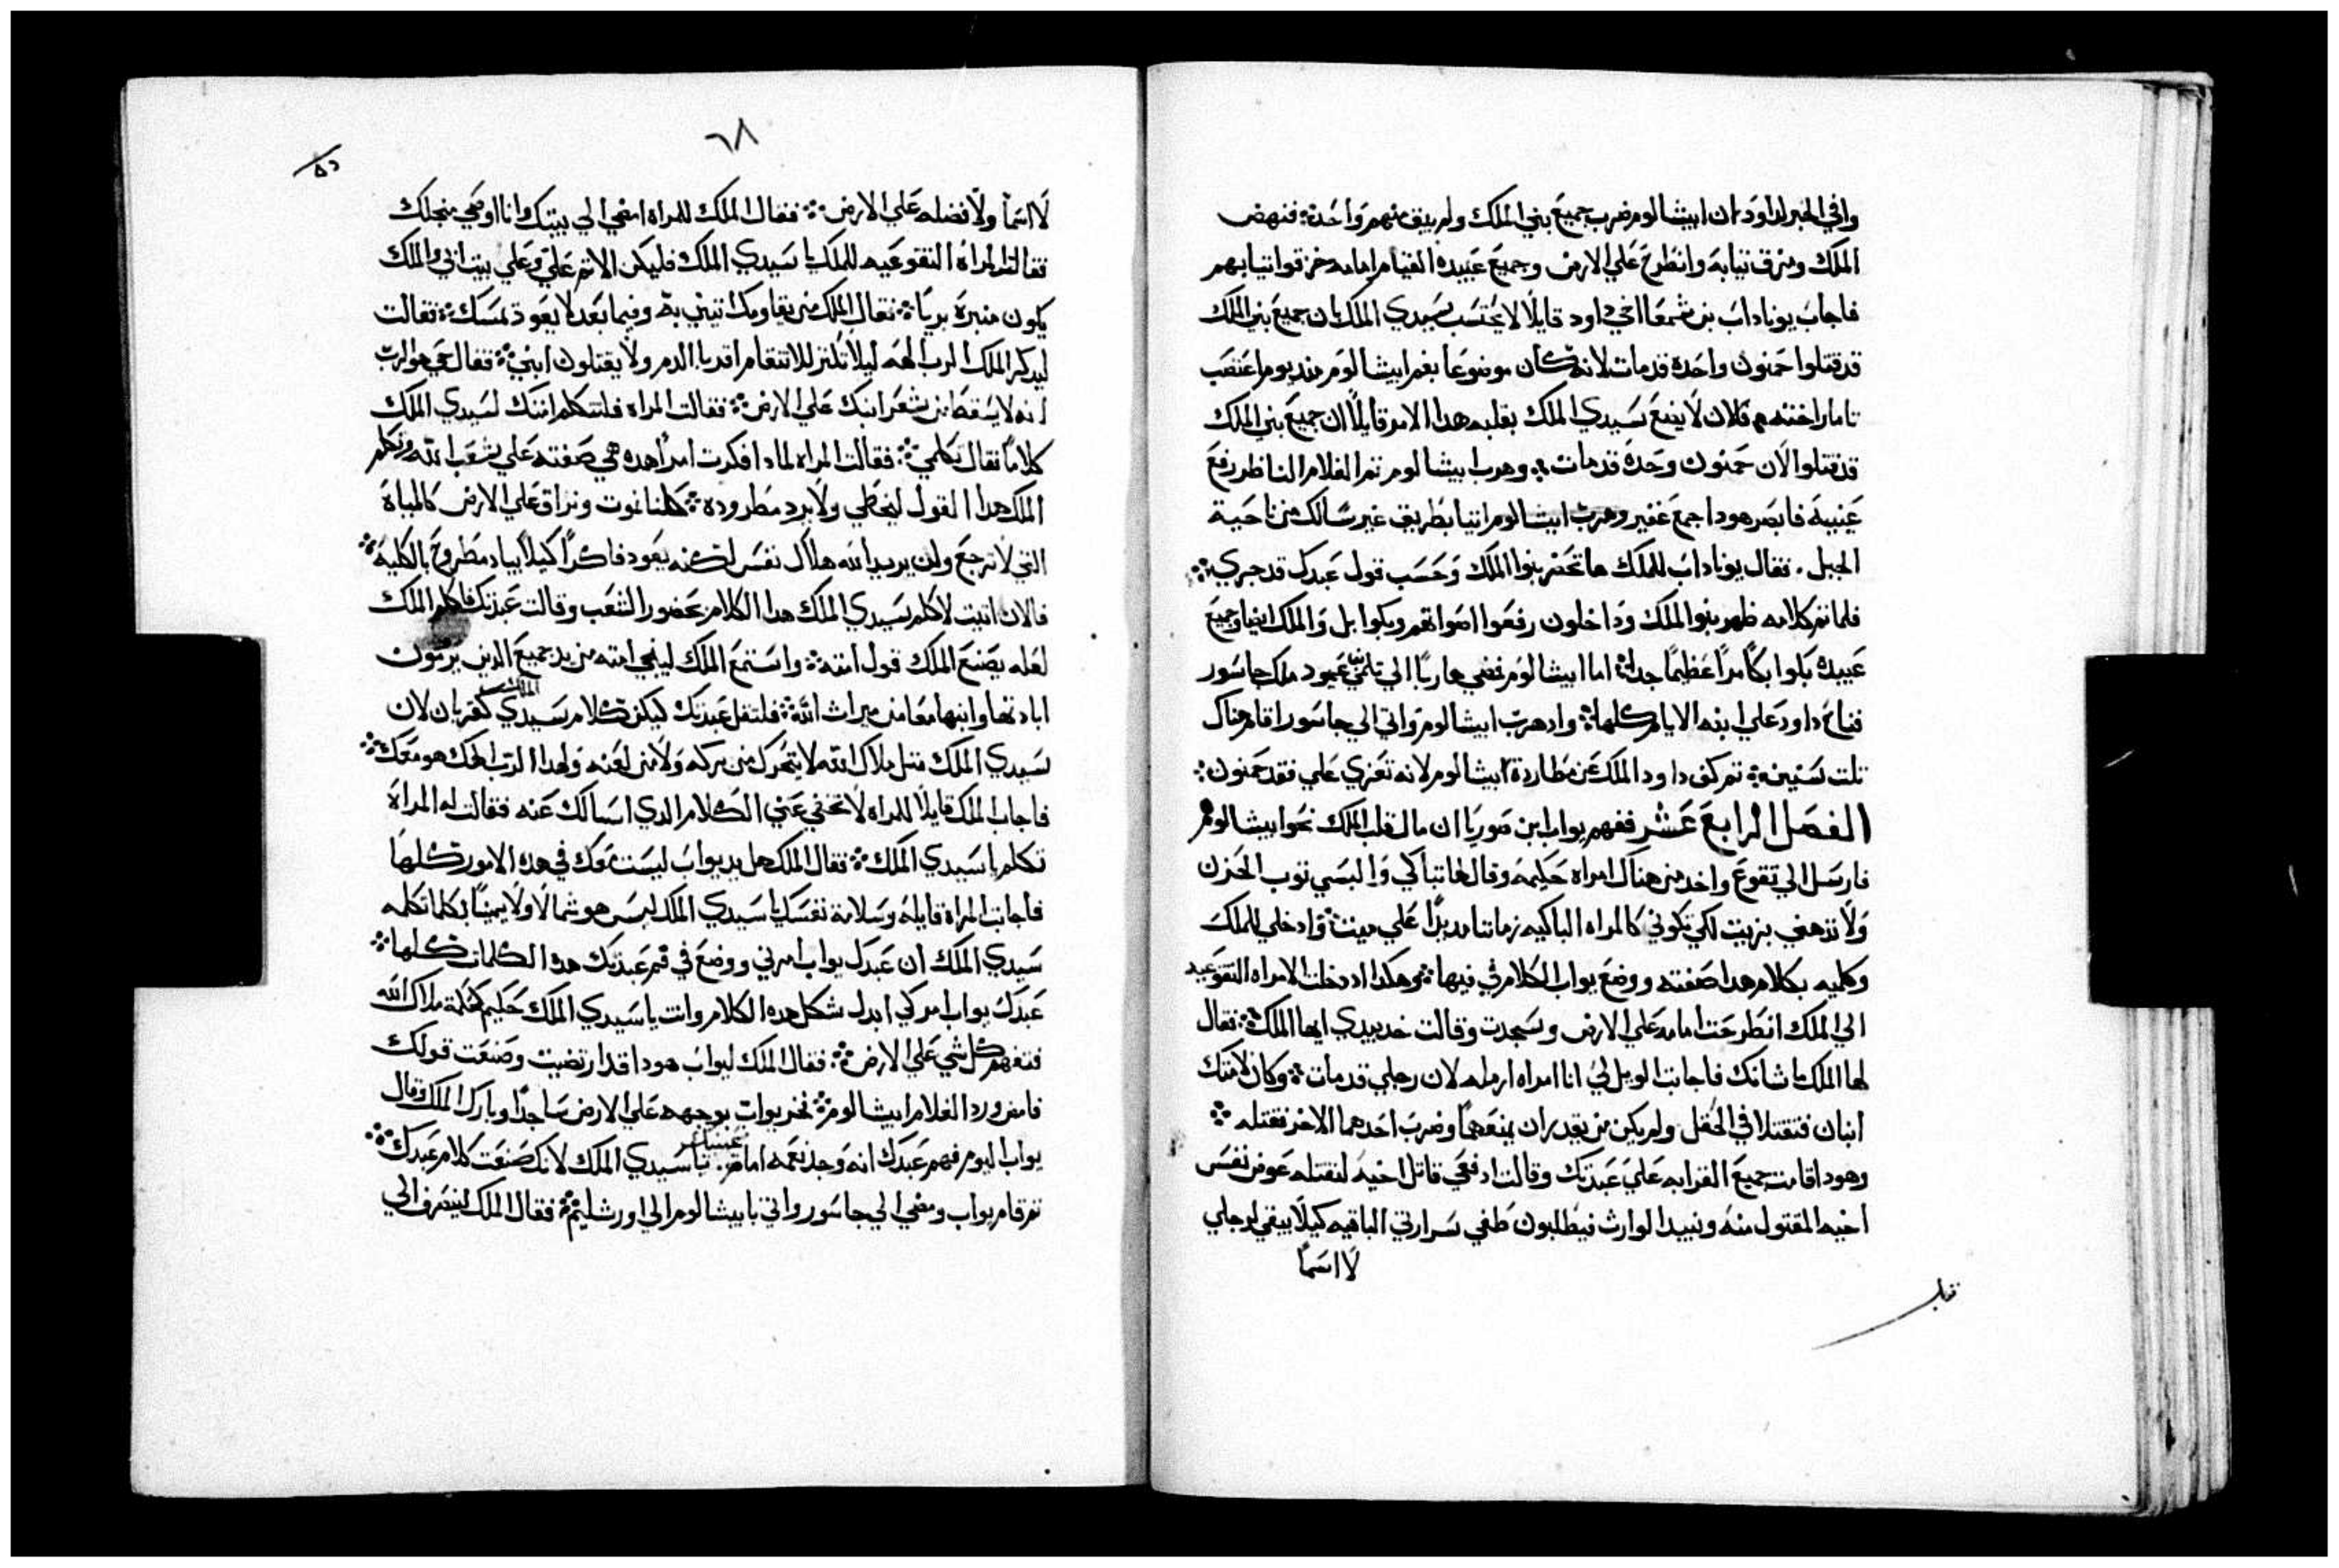 وافي الخبر لداود ان ابيشالوم ضرب جميع بني الملك ولم يبق منهم واحدة فنهض
الملك ومزق تيابه وانطرح علي الارض وجميع عبيده القيام امامه خزقوا تيابهم
فاجاب يوناداب بن شمعا اخي داود قايلا لا يحتسب سيدي الملك بان جميع بني الملك
قد قتلوا حمنون واحده قد مات لانه كان موضوعا بفم ابيشالوم منديوم اغتصب
تامار اخته فلان لا يضع سيدي الملك بقلبه هدا الامر قايلا ان جميع بني الملك
قد قتلوا الان حمنون وحده قد مات وهرب ابيشالوم تم الغلام الناظر رفع
عينيه فابصر هودا جمع غفير وهرب ابيشالوم اتيا بطريق غير سالك من ناحية
الجبل . فقال يوناداب للملك ها تحضر بنوا الملك وحسب قول عبدك قد جري
فلما تم كلامه ظهر بنوا الملك وداخلون رفعوا اصواتهم وبكوا بل والملك ايضا وجميع
عبيده بكوا بكا مرا عظيما جدا اما ابيشالوم فمضي هاربا الي تلمي بن عميود ملك جاسور
فناح داود علي ابنه الايام كلها وادهرب ابيشالوم واتي الي جاسور اقام هناك
تلت سنين تم كف داود الملك عن مطاردة ابيشالوم لانه تعزي علي فقد حمنون
الفصل الرابع عشر ففهم يواب ابن صوريا ان مال قلب الملك نحو ابيشالوم
فارسل الي تقوع واخد من هناك امراه حكيمه وقال لها تباكي والبسي توب الحزن
ولا تدهني بزيت لكي تكوني كالمراه الباكيه زمانا مديدا علي ميت وادخلي للملك
وكلميه بكلام هدا صفته ووضع يواب الكلام في فيها وهكدا اد دخلت الامراه التقوعيه
الي الملك انطرحت امامه علي الارض وسجدت وقالت خد بيدي ايها الملك فقال
لها الملك ما شانك فاجابت الويل لي انا امراه ارمله لان رجلي قد مات وكان لامتك
ابنان فتقتلا في الحقل ولم يكن من يقدر ان يمنعهما وضرب احدهما الاخر فقتله
وهودا قامت جميع القرابه علي عبدتك وقالت ادفعي قاتل اخيه لنقتله عوض نفس
اخيه المقتول منه ونبيد الوارث فيطلبون طفي سرارتي الباقيه كيلا يبقي لرجلي
لا اسما
٦٨
لا اسما ولا فضله علي الارض فقال الملك للمراه امضي الي بيتك وانا اوصي منجلك
فقالت المراه التقوعيه للملك يا سيدي الملك فليكن الاتم علي وعلي بيت ابي والملك
يكون منبره بريا فقال الملك من يقاومك اتيني به وفيما بعد لا يعود تمسك فقالت
ليدكر الملك الرب الهه ليلا تكتر للانتقام اقربا الدم ولا يقتلون ابني فقال حي هو الرب
انه لا يسقط من شعر ابنك علي الارض فقالت المراه فلتتكلم امتك لسيدي الملك
كلاما فقال تكلمي فقالت المراه لمادا فكرت امرا هده هي صفته علي شعب الله وتكلم
الملك هدا القول ليخطي ولا يرد مطروده كلنا نموت ونراق علي الارض كالمياه
التي لا ترجع ولن يريد الله هلاك نفس لكنه يعود فاكرا كيلا يباد مطروح بالكليه
فالان اتيت لاكلم سيدي الملك هدا الكلام بحضور الشعب وقالت عبدتك فاكلم الملك
لعله يصنع الملك قول امته واستمع الملك لينجي امته من يد جميع الدين يرمون
ابادتها وابنها معا من ميراث الله فلتقل عبدتك كيكن كلام سيدي الملك كقربان لان
سيدي الملك متل ملاك الله لا يتحرك من بركه ولا من لعنه ولهدا الرب الهك هو معك
فاجاب الملك قايلا للمراه لا تخفي عني الكلام الدي اسالك عنه فقالت له المراه
تكلم يا سيدي الملك فقال الملك هل يد يواب ليست معك في هده الامور كلها
فاجابت المراه قايله وسلامة نفسك يا سيدي الملك ليس هو شمالا ولا يمينا بكلما تكلمه
سيدي الملك ان عبدك يواب امرني ووضع في فم عبدتك هده الكلمات كلها
عبدك يواب امر كي ابدل شكل هده الكلام وانت يا سيدي الملك حكيم كحكمة ملاك الله
فتفهم كل شي علي الارض فقال الملك ليواب هودا قد ارتضيت وصنعت قولك
فامض ورد الغلام ابيشالوم فخر يواب بوجهه علي الارض ساجدا وبارك الملك وقال
يواب اليوم فهم عبدك انه وجد نعمه امام عينيك يا سيدي الملك لانك صنعت كلام عبدك
تم قام يواب ومضي الي جاسور واتي بابيشالوم الي اورشليم فقال الملك لينصرف الي